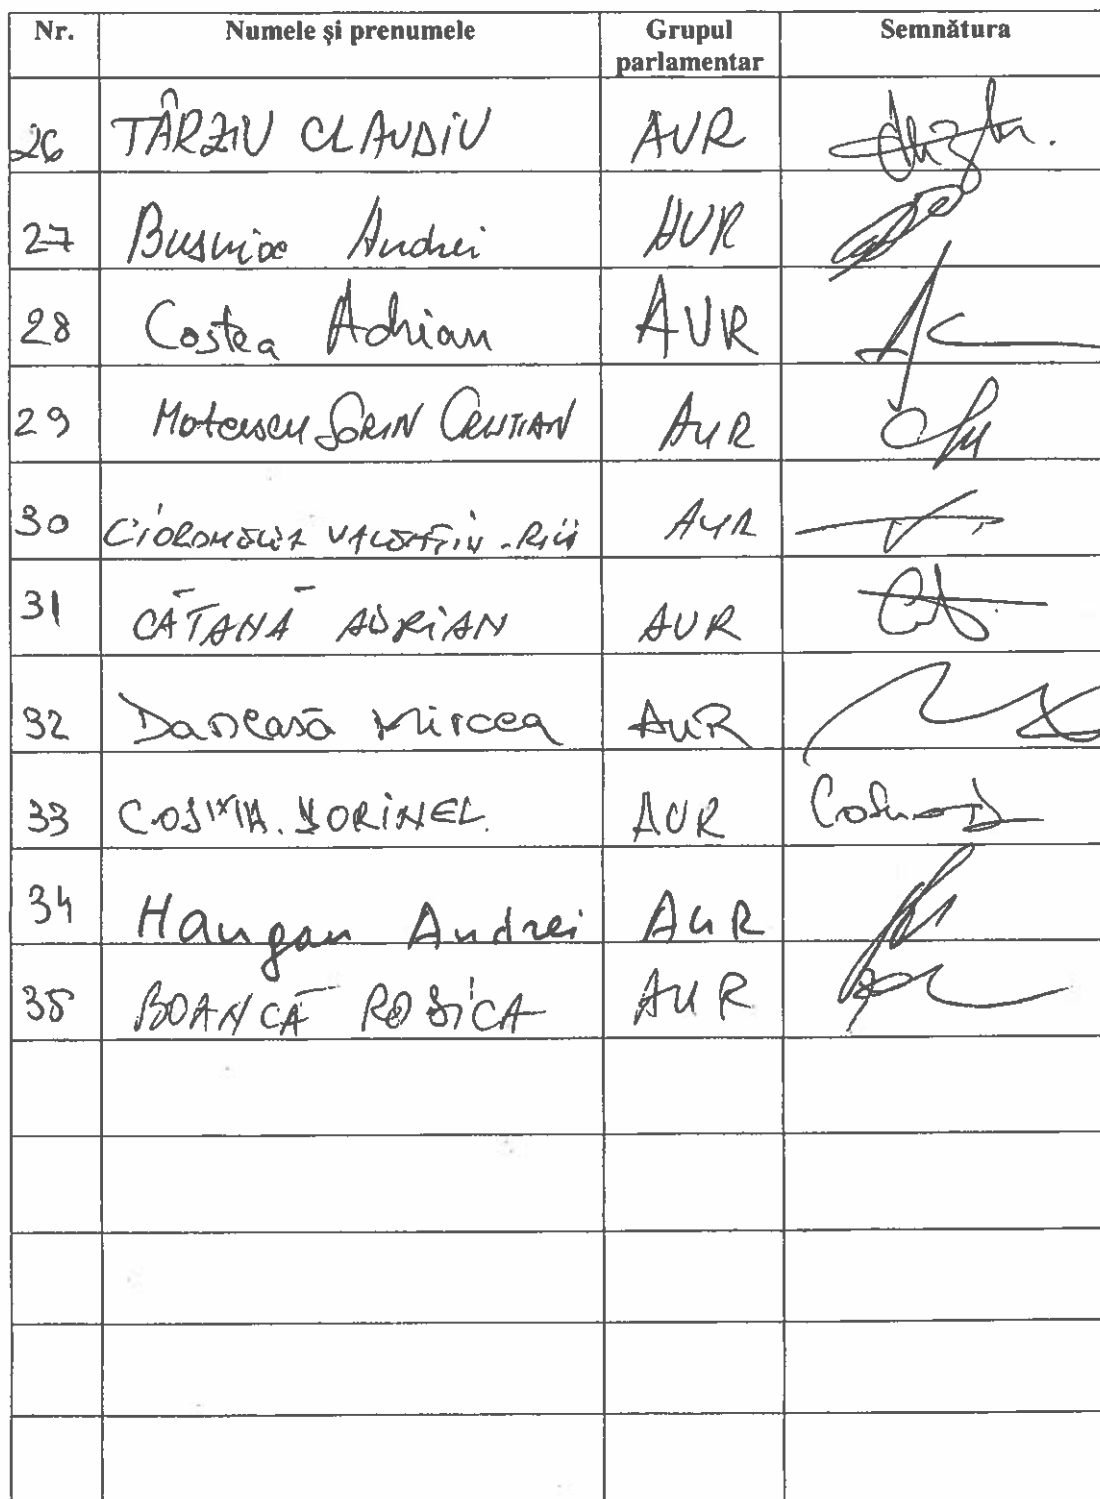 Nr. Numele și prenumele Grupul parlamentar Semnătura
26 TÂRZIU CLAUDIU AUR
27 Busuioc Andrei AUR
28 Costea Adrian AUR
29 SORIN CRISTIAN AUR
30 VALENTIN AUR
31 CĂTANĂ ADRIAN AUR
32 Mircea AUR
33 COSMA DORINEL. AUR
34 Haugan Andrei AUR
35 BOANCĂ RODICA AUR